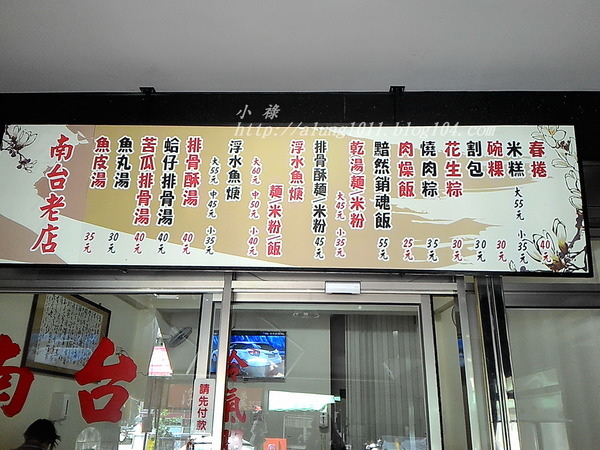 小祿
http://alung1011.blog104.com
春捲 40元
米糕 大55元 小35元
碗粿 30元
割包 30元
花生粽 30元
燒肉粽 35元
肉燥飯 25元
黯然銷魂飯 55元
乾湯麵/米粉 大45元 小35元
排骨酥麵/米粉 45元
浮水魚焿 麵/米粉/飯 大60元 中50元 小40元
浮水魚焿 大55元 中45元 小35元
排骨酥湯 40元
蛤仔排骨湯 40元
苦瓜排骨湯 40元
魚丸湯 30元
魚皮湯 35元
南台老店
南台
請先付款
冷氣